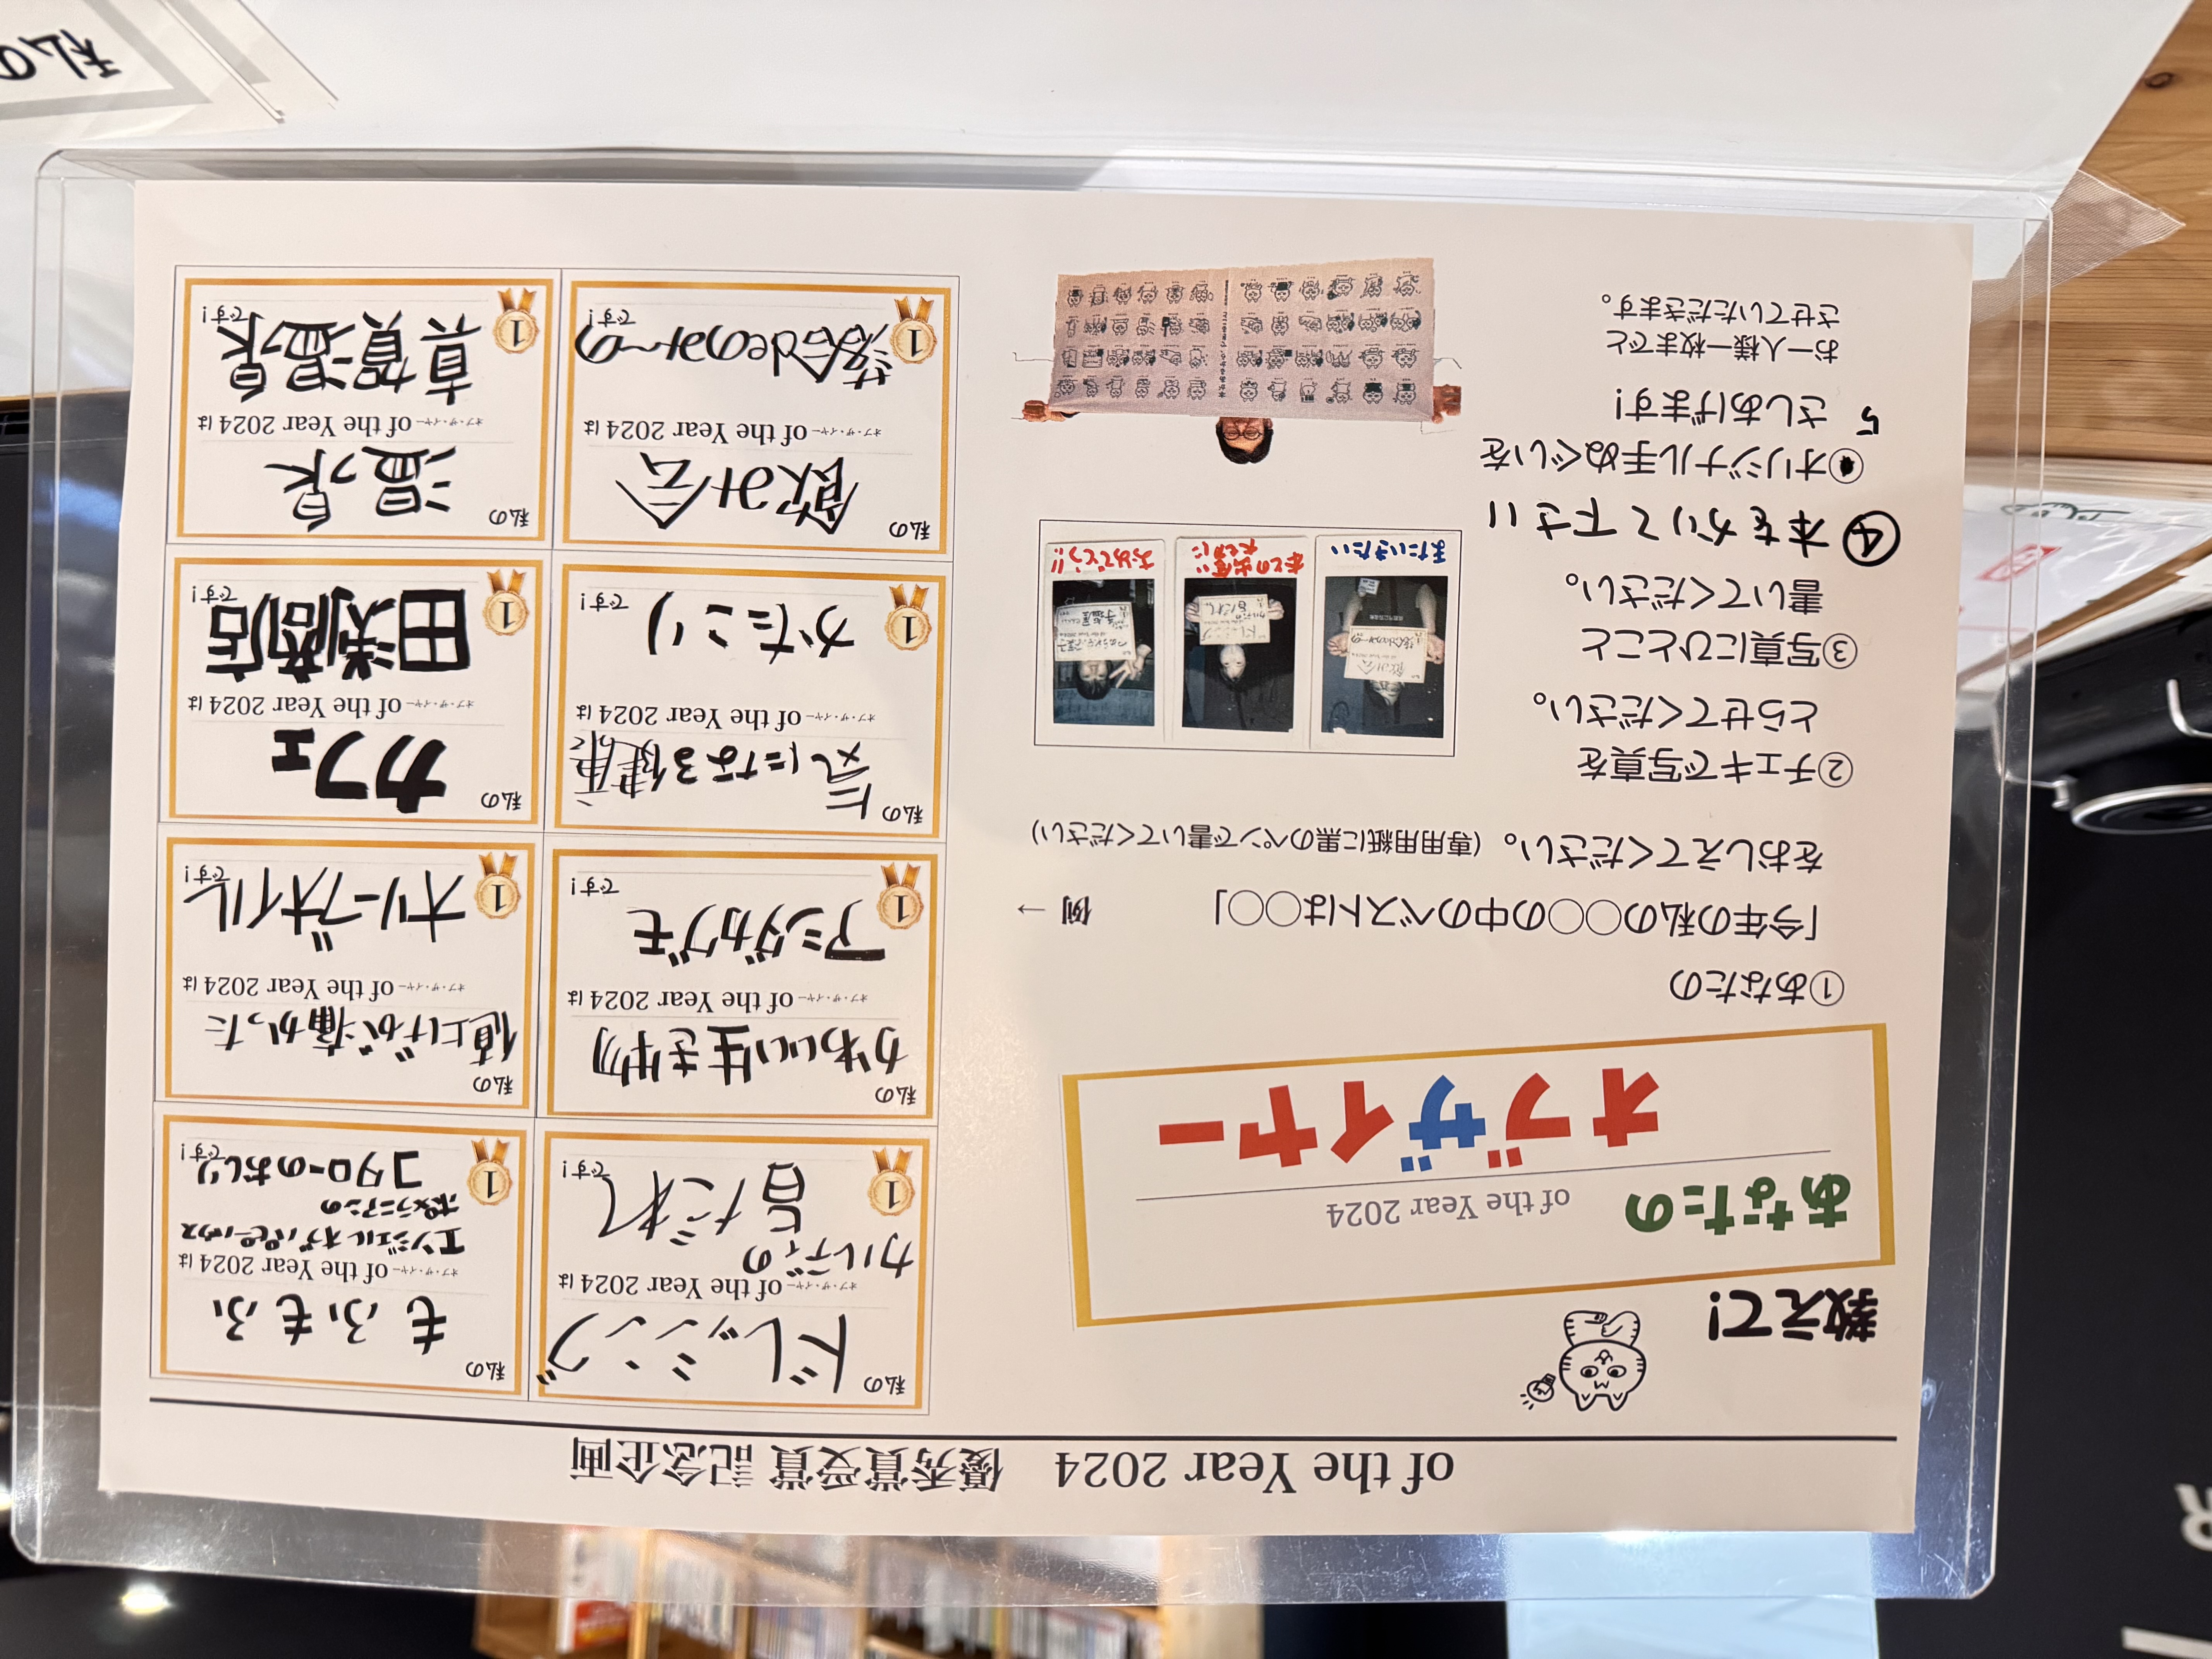 of the Year 2024 優秀賞受賞 記念企画
教えて!
あなたの
of the Year 2024
オブザイヤー
①あなたの
「今年の私の〇〇の中のベストは〇〇」
をおしえてください。(専用用紙に黒のペンで書いてください)
例 →
②チェキで写真を
とらせてください。
③写真にひとこと
書いてください。
④ 本をかりて下さい
オリジナル手ぬぐいを
5 さしあげます!
お一人様一枚までと
させていただきます。
またいきたい
おめでとう!!
私の
ドレッシング
of the Year 2024 は
オブ・ザ・イヤー
カルディの
旨だれ
です!
1
私の
もふもふ
of the Year 2024 は
オブ・ザ・イヤー
エンジェルオブパピーハウス
ポメラニアンの
コタローのおしり
です!
1
私の
かわいい生き物
of the Year 2024 は
オブ・ザ・イヤー
アシダカグモ
です!
1
私の
値上げが痛かった
of the Year 2024 は
オブ・ザ・イヤー
オリーブオイル
です!
1
私の
気になる健康
of the Year 2024 は
オブ・ザ・イヤー
かたこり
です!
1
私の
カフェ
of the Year 2024 は
オブ・ザ・イヤー
田渕商店
です!
1
私の
飲み会
of the Year 2024 は
オブ・ザ・イヤー
落合deのみ〜の
です!
1
私の
温泉
of the Year 2024 は
オブ・ザ・イヤー
真賀温泉
です!
1
私の